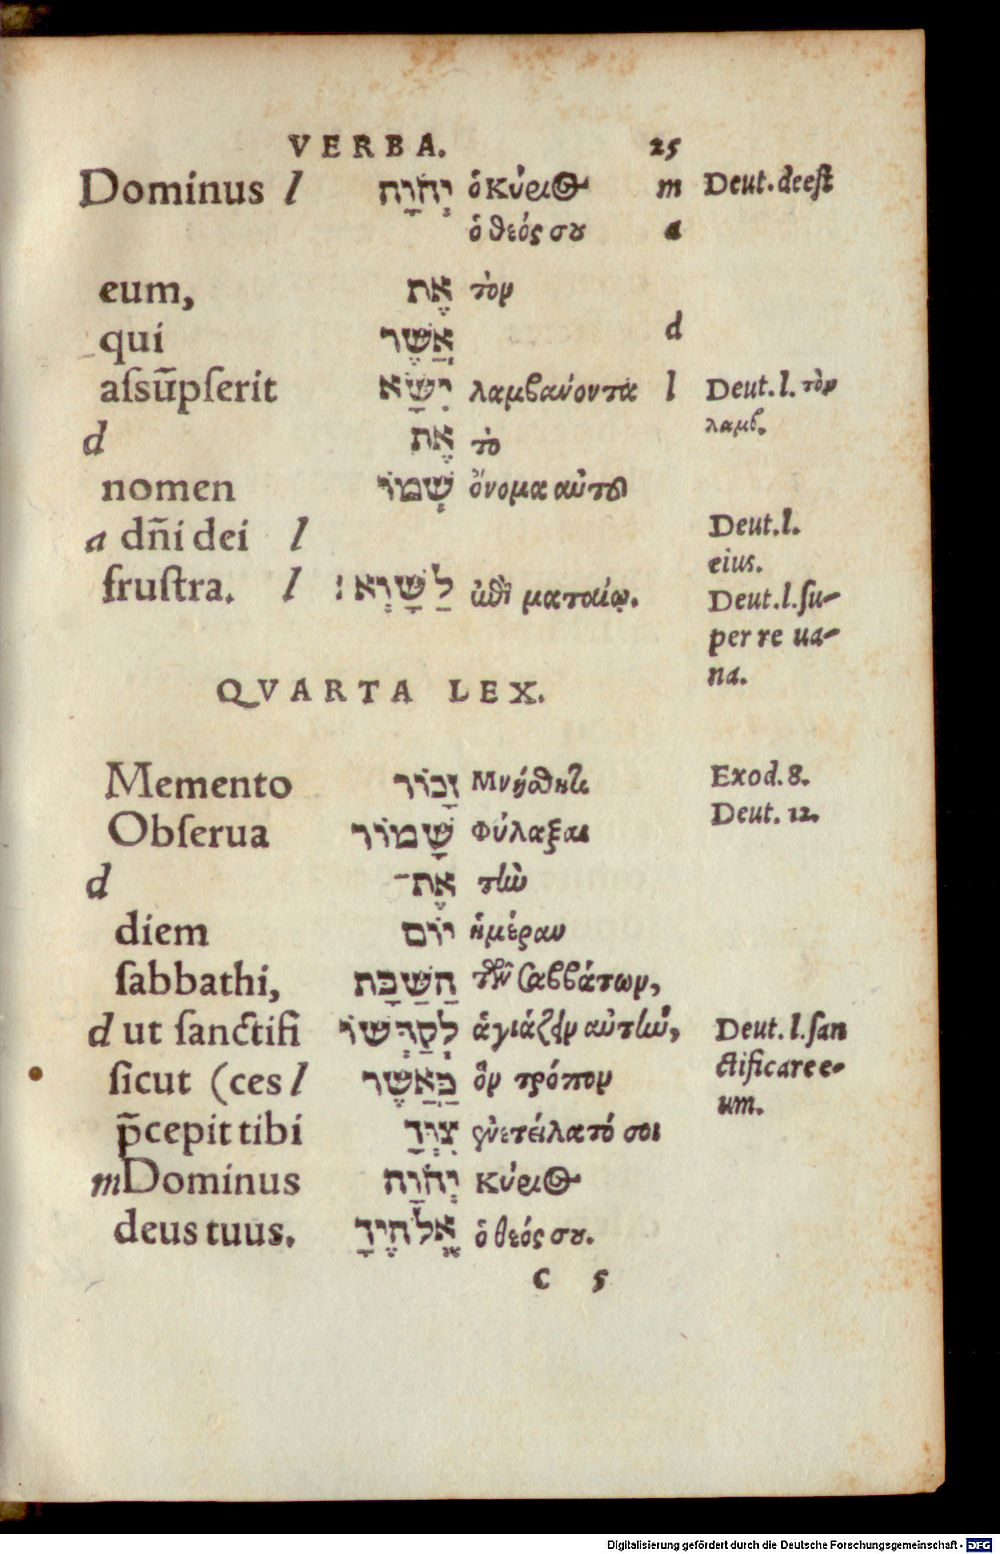 VERBA. 25
Dominus l יְהֹוָה ὁ Κύριος m Deut. deest
ὁ θεός σου a
eum, אֶת τὸν
qui אֲשֶׁר d
assūpserit יִשָּׂא λαμβανοντα l Deut. l. τὸν
λαμβ.
d אֶת τὸ
nomen שְׁמוֹ ὄνομα αὐτοῦ
a dñi dei l Deut. l.
eius.
frustra. l לַשָּׁוְא׃ ἐπὶ ματαίῳ. Deut. l. su-
per re ua-
na.
QVARTA LEX.
Memento זָכוֹר Μνήσθητι Exod. 8.
Obserua שָׁמוֹר Φύλαξαι Deut. 12.
d אֶת־ τὴν
diem יוֹם ἡμέραν
sabbathi, הַשַּׁבָּת τῶν Σαββάτων,
d ut sanctifi לְקַדְּשׁוֹ ἁγιάζειν αὐτὴν, Deut. l. san
sicut (ces l כַּאֲשֶׁר ὃν τρόπον ctificare e-
um.
p̄cepit tibi צִוְּךָ ἐνετείλατό σοι
m Dominus יְהֹוָה Κύριος
deus tuus. אֱלֹהֶיךָ ὁ θεός σου.
C 5
Digitalisierung gefördert durch die Deutsche Forschungsgemeinschaft - DFG